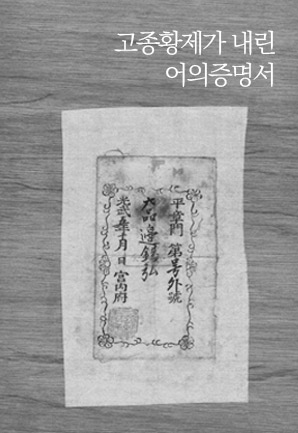 고종황제가 내린
어의증명서
平章門 第 号外號
六品 邊錫弘
光武 年 月 日 宮內府